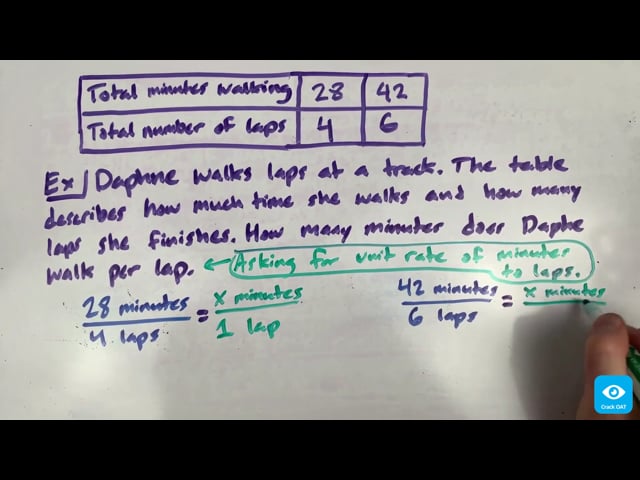 Total minutes walking 28 42
Total number of laps 4 6
Ex Daphne walks laps at a track. The table
describes how much time she walks and how many
laps she finishes. How many minutes does Daphe
walk per lap. ← Asking for unit rate of minutes
to laps.
28 minutes = x minutes
4 laps 1 lap
42 minutes = x minutes
6 laps
Crack OAT